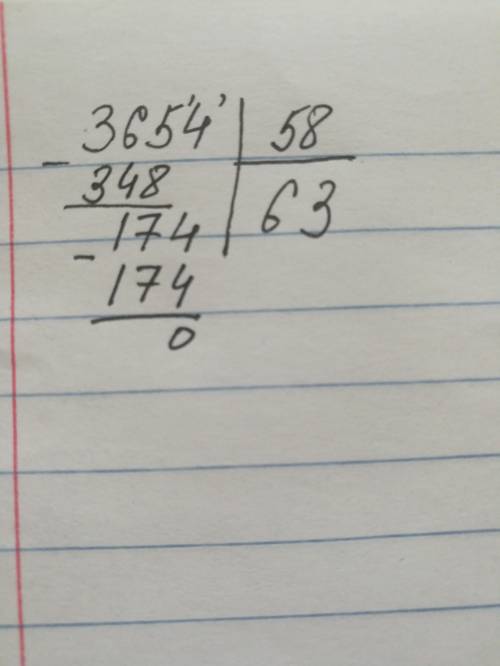 3654 58
- 348 63
174
- 174
0